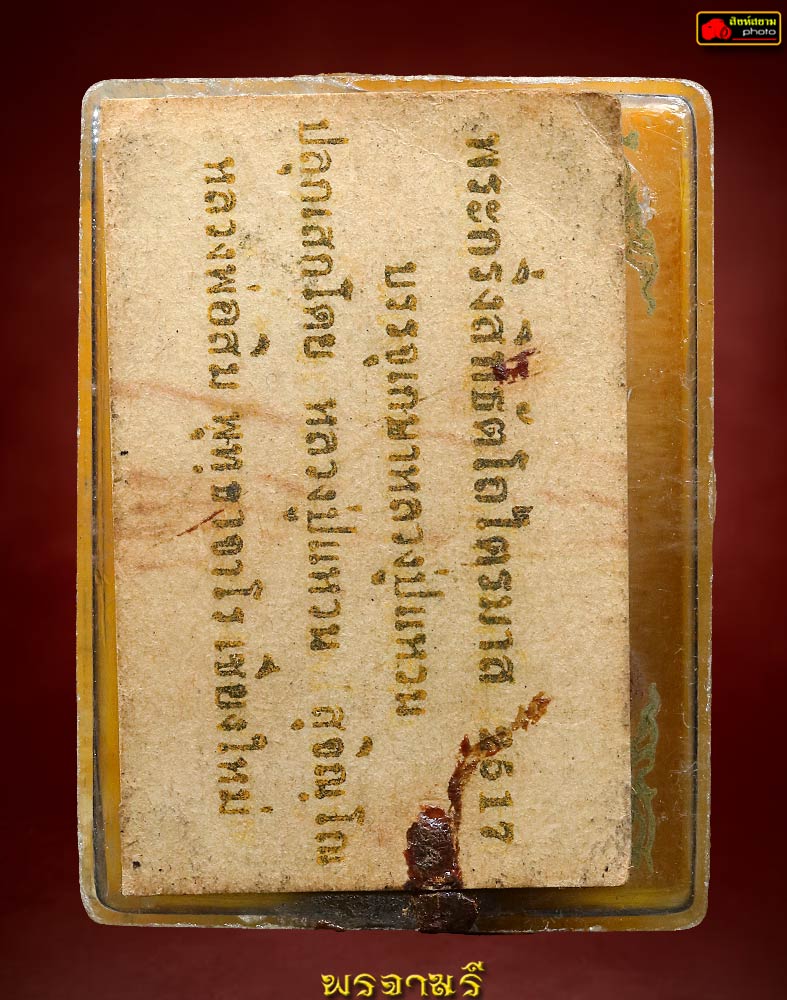 สิงห์สยาม
photo
พระกริ่งสิทธัตโถไตรมาส 2517
บรรจุเกษาหลวงปู่แหวน
ปลุกเสกโดย หลวงปู่แหวน สุจิณฺโณ
หลวงพ่อสิม พุทฺธาจาโร เชียงใหม่
พรจามรี